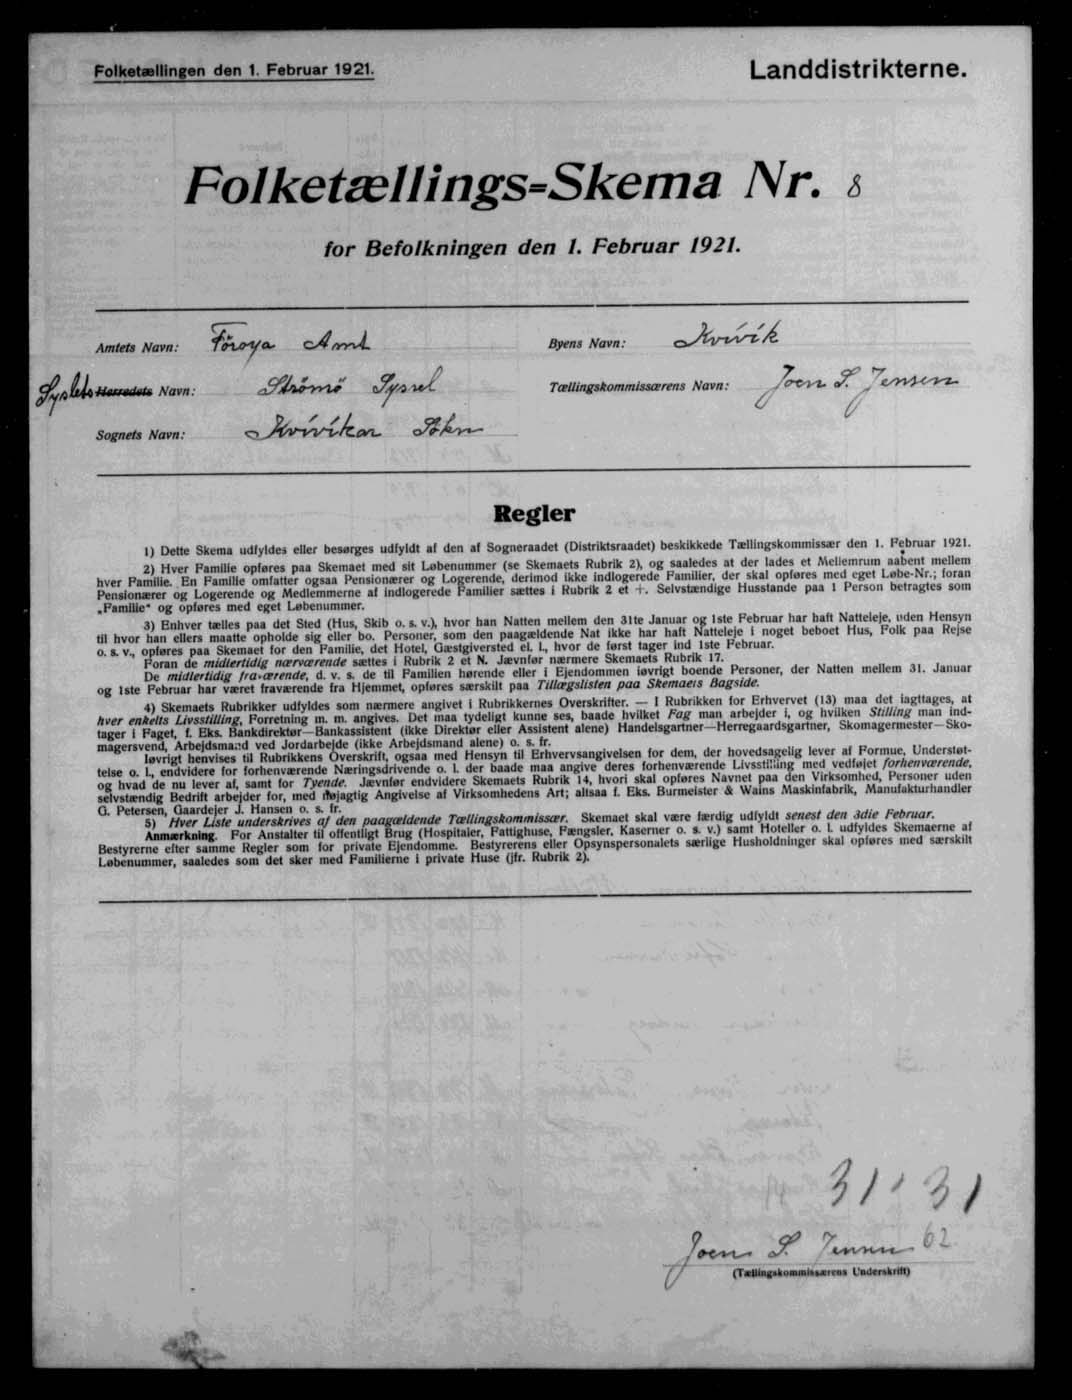 Folketællingen den 1. Februar 1921.
Landdistrikterne.
Folketællings=Skema Nr. 8
for Befolkningen den 1. Februar 1921.
Amtets Navn: Föroya Amt
Byens Navn: Kvívík
Syslets Herredets Navn: Strömö Syssel
Tællingskommissærens Navn: Joen S. Jensen
Sognets Navn: Kvívíkar Sókn
Regler
1) Dette Skema udfyldes eller besørges udfyldt af den af Sogneraadet (Distriktsraadet) beskikkede Tællingskommissær den 1. Februar 1921.
2) Hver Familie opføres paa Skemaet med sit Løbenummer (se Skemaets Rubrik 2), og saaledes at der lades et Mellemrum aabent mellem
hver Familie. En Familie omfatter ogsaa Pensionærer og Logerende, derimod ikke indlogerede Familier, der skal opføres med eget Løbe-Nr.; foran
Pensionærer og Logerende og Medlemmerne af indlogerede Familier sættes i Rubrik 2 et +. Selvstændige Husstande paa 1 Person betragtes som
„Familie“ og opføres med eget Løbenummer.
3) Enhver tælles paa det Sted (Hus, Skib o. s. v.), hvor han Natten mellem den 31te Januar og 1ste Februar har haft Natteleje, uden Hensyn
til hvor han ellers maatte opholde sig eller bo. Personer, som den paagældende Nat ikke har haft Natteleje i noget beboet Hus, Folk paa Rejse
o. s. v., opføres paa Skemaet for den Familie, det Hotel, Gæstgiversted el. l., hvor de først tager ind 1ste Februar.
Foran de midlertidig nærværende sættes i Rubrik 2 et N. Jævnfør nærmere Skemaets Rubrik 17.
De midlertidig fraværende, d. v. s. de til Familien hørende eller i Ejendommen iøvrigt boende Personer, der Natten mellem 31. Januar
og 1ste Februar har været fraværende fra Hjemmet, opføres særskilt paa Tillægslisten paa Skemaets Bagside.
4) Skemaets Rubrikker udfyldes som nærmere angivet i Rubrikkernes Overskrifter. — I Rubrikken for Erhvervet (13) maa det iagttages, at
hver enkelts Livsstilling, Forretning m. m. angives. Det maa tydeligt kunne ses, baade hvilket Fag man arbejder i, og hvilken Stilling man ind-
tager i Faget, f. Eks. Bankdirektør—Bankassistent (ikke Direktør eller Assistent alene) Handelsgartner—Herregaardsgartner, Skomagermester—Sko-
magersvend, Arbejdsmand ved Jordarbejde (ikke Arbejdsmand alene) o. s. fr.
Iøvrigt henvises til Rubrikkens Overskrift, ogsaa med Hensyn til Erhvervsangivelsen for dem, der hovedsagelig lever af Formue, Understøt-
telse o. l., endvidere for forhenværende Næringsdrivende o. l. der baade maa angive deres forhenværende Livsstilling med vedføjet forhenværende,
og hvad de nu lever af, samt for Tyende. Jævnfør endvidere Skemaets Rubrik 14, hvori skal opføres Navnet paa den Virksomhed, Personer uden
selvstændig Bedrift arbejder for, med nøjagtig Angivelse af Virksomhedens Art; altsaa f. Eks. Burmeister & Wains Maskinfabrik, Manufakturhandler
G. Petersen, Gaardejer J. Hansen o. s. fr.
5) Hver Liste underskrives af den paagældende Tællingskommissær. Skemaet skal være færdig udfyldt senest den 3die Februar.
Anmærkning. For Anstalter til offentligt Brug (Hospitaler, Fattighuse, Fængsler, Kaserner o. s. v.) samt Hoteller o. l. udfyldes Skemaerne af
Bestyrerne efter samme Regler som for private Ejendomme. Bestyrerens eller Opsynspersonalets særlige Husholdninger skal opføres med særskilt
Løbenummer, saaledes som det sker med Familierne i private Huse (jfr. Rubrik 2).
31 31
62
Joen S. Jensen
(Tællingskommissærens Underskrift)